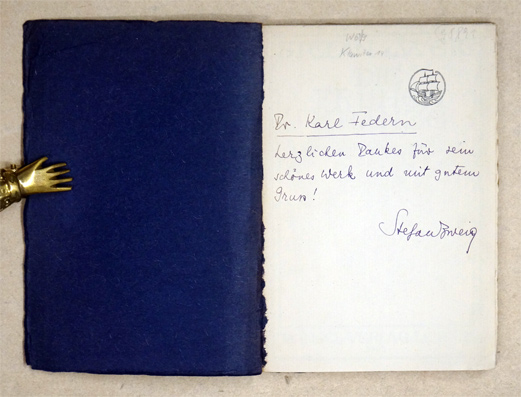 Dr. Karl Federn
herzlichen Dankes für sein
schönes Werk und mit gutem
Gruss!
Stefan Zweig